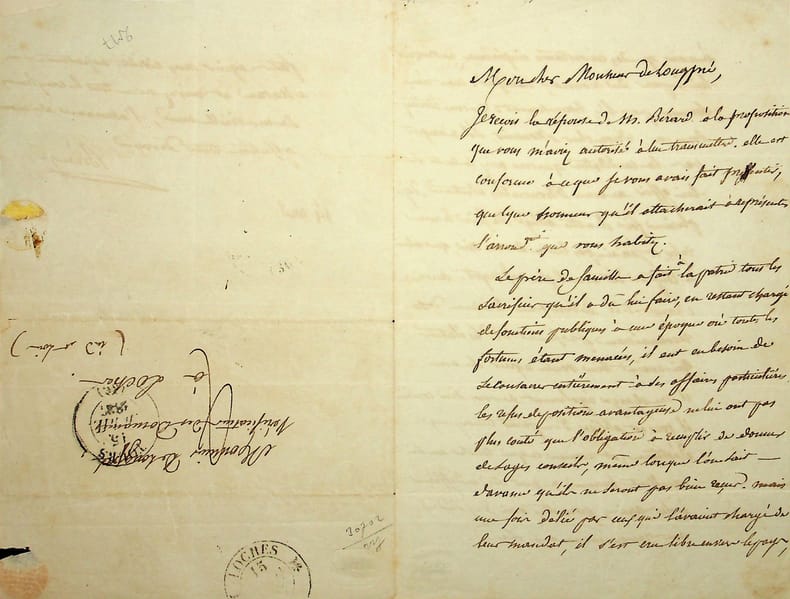 Mon cher Monsieur de Longpré,
Je reçois la réponse de M. Bérard à la proposition
que vous m'aviez autorisé à lui transmettre. elle est
conforme à ce que je vous avais fait pressentir,
quelque honneur qu'il attacherait à représenter
l'arrond.t que vous habitez.
Le père de famille a fait à la patrie tous les
sacrifices qu'il a dû lui faire, en restant chargé
de fonctions publiques à une époque où toutes les
fortunes étant menacées, il eut eu besoin de
se consacrer entièrement à des affaires particulières.
les refus de positions avantageuses ne lui ont pas
plus couté que l'obligation à remplir de donner
de sages conseils, même lorsque l'on sait
d'avance qu'ils ne seront pas bien reçus. mais
une fois délié par ceux qui l'avaient chargé de
leur mandat, il s'est cru libre envers le pays,
Monsieur de Longpré
Vérificateur des Domaines
à
Loches
(Ind. et Loire)
15
LOCHES
15
20202